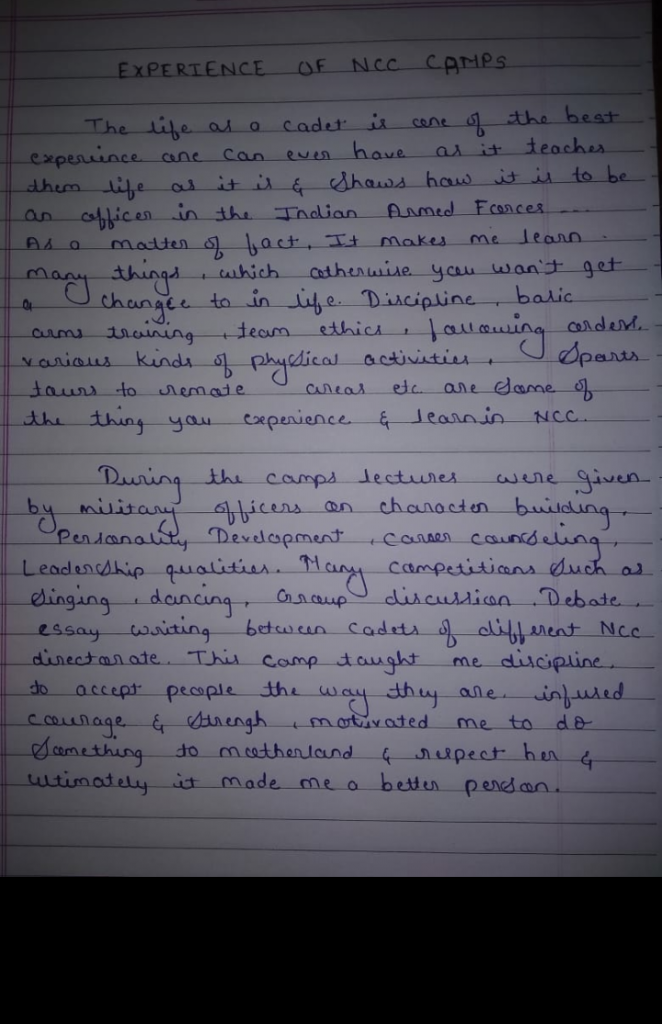 EXPERIENCE OF NCC CAMPS
The life as a cadet is one of the best
experience one can ever have as it teaches
them life as it is & shows how it is to be
an officer in the Indian Armed Forces ....
As a matter of fact, It makes me learn
many things, which otherwise you wan't get
a changce to in life. Discipline, basic
arms training, team ethics, following orders.
various kinds of physical activities, Sports
tours to remote areas etc are some of
the thing you experience & learn in NCC.
During the camps lectures were given
by military officers on character building,
Personality Development, career counseling,
Leadership qualities. Many competitions such as
singing, dancing, Group discussion, Debate,
essay writing between cadets of different NCC
directorate. This camp taught me discipline,
to accept people the way they are. infused
courage & strengh, motivated me to do
Something to motherland & respect her &
ultimately it made me a better person.